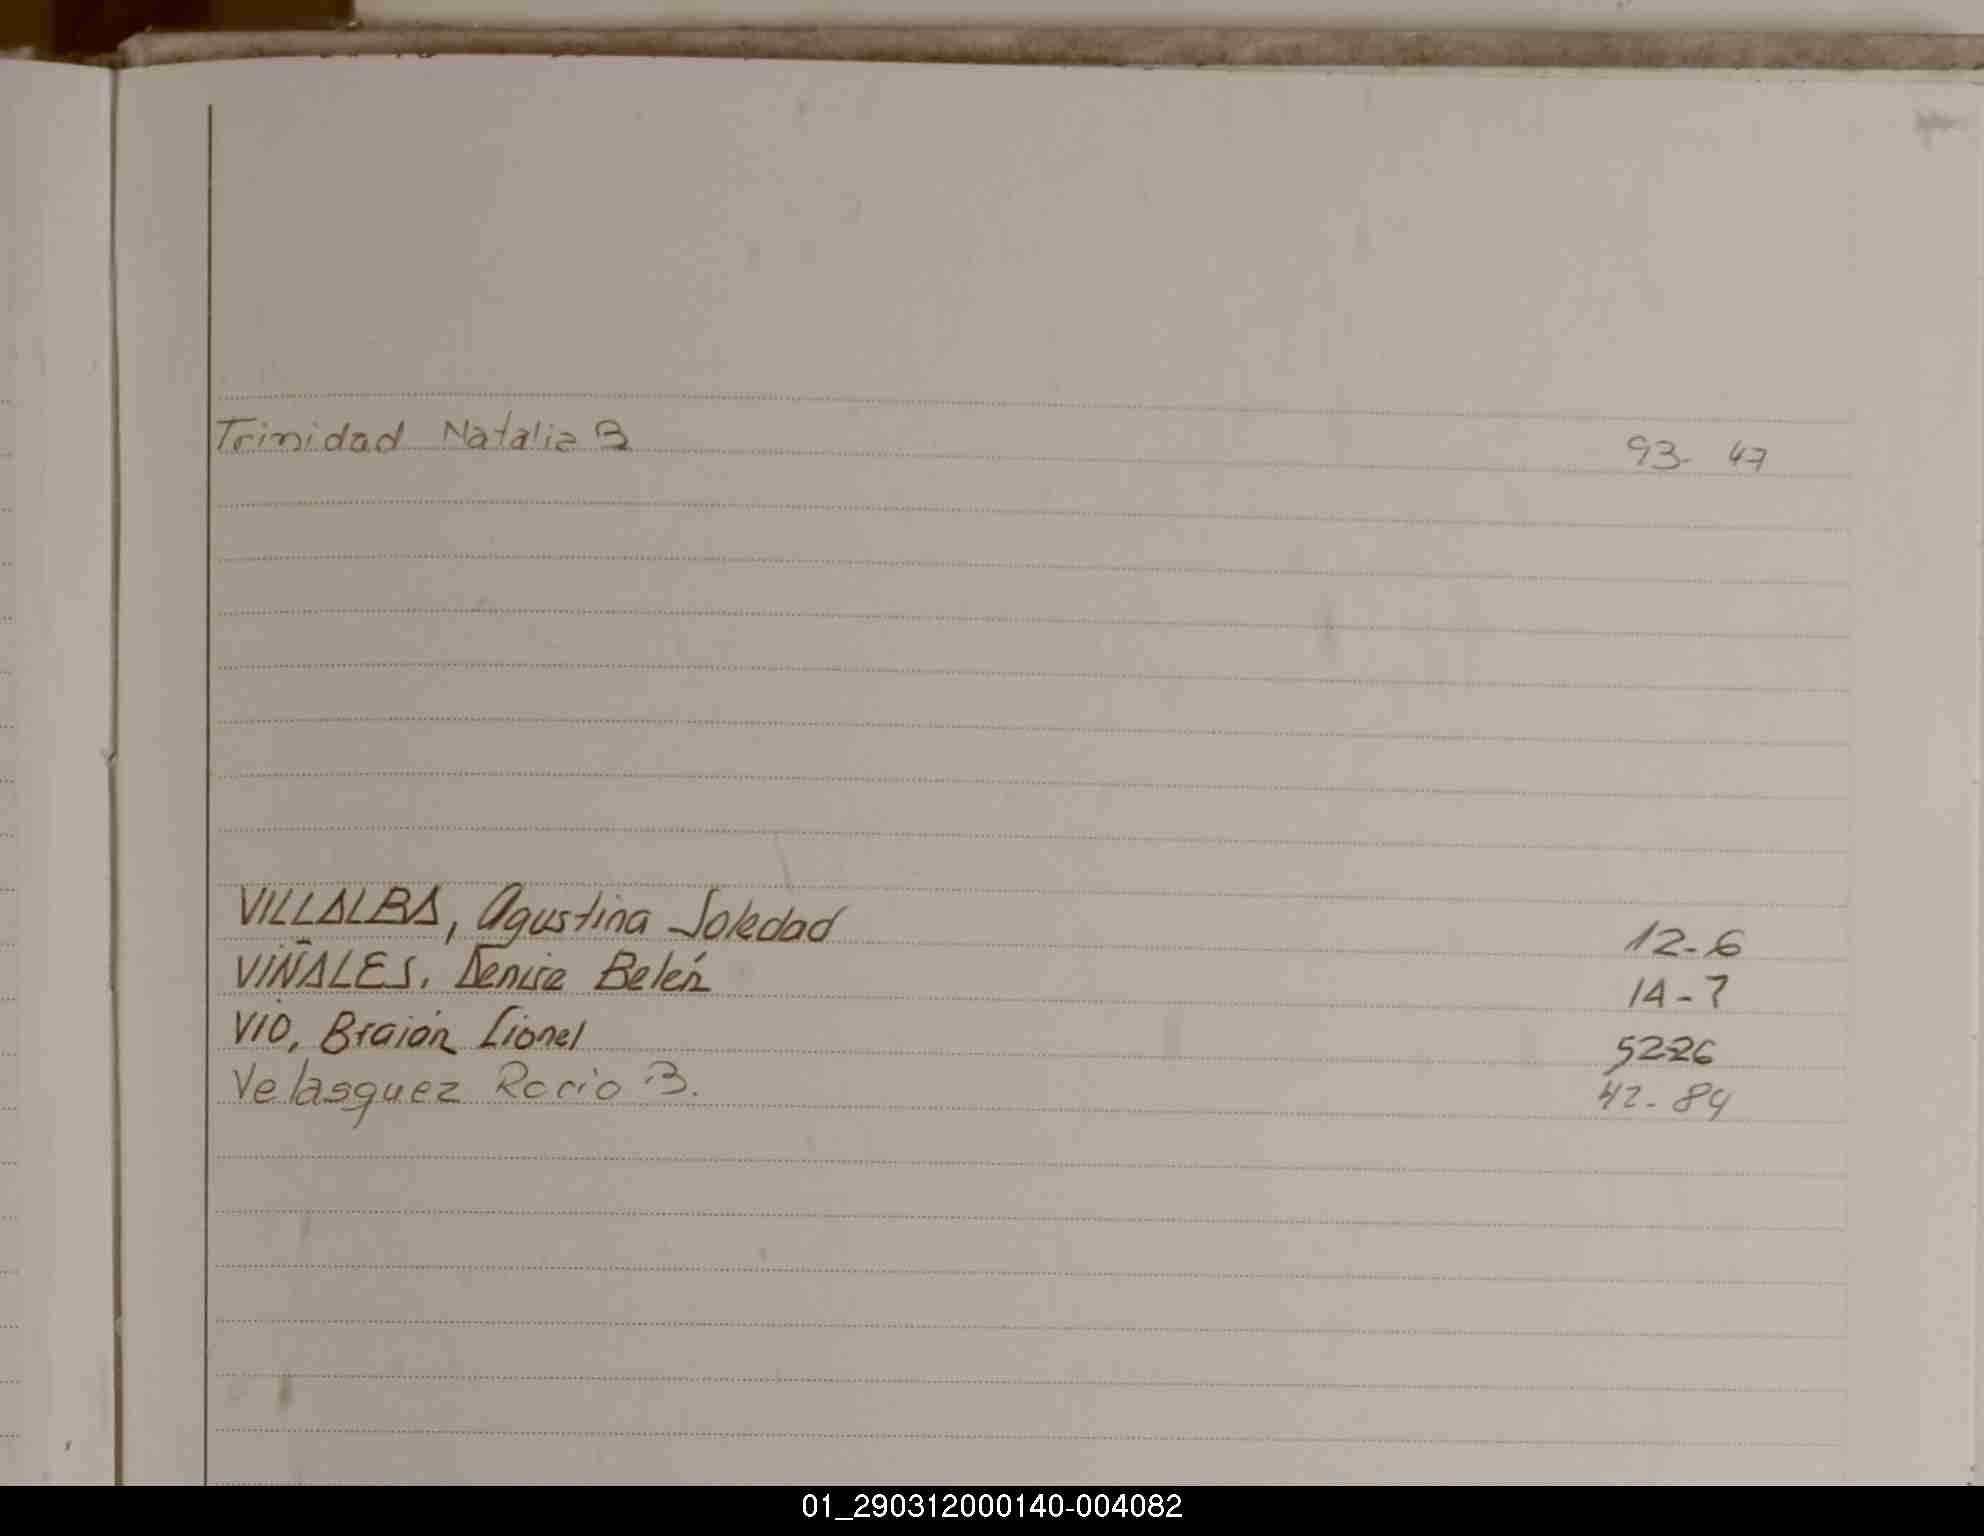 Trinidad Natalia B 93- 47
VILLALBA, Agustina Soledad 12-6
VIÑALES, Denise Belén 14-7
VIO, Braión Lionel 52-26
Velasquez Rocio B. 42-84
01_290312000140-004082